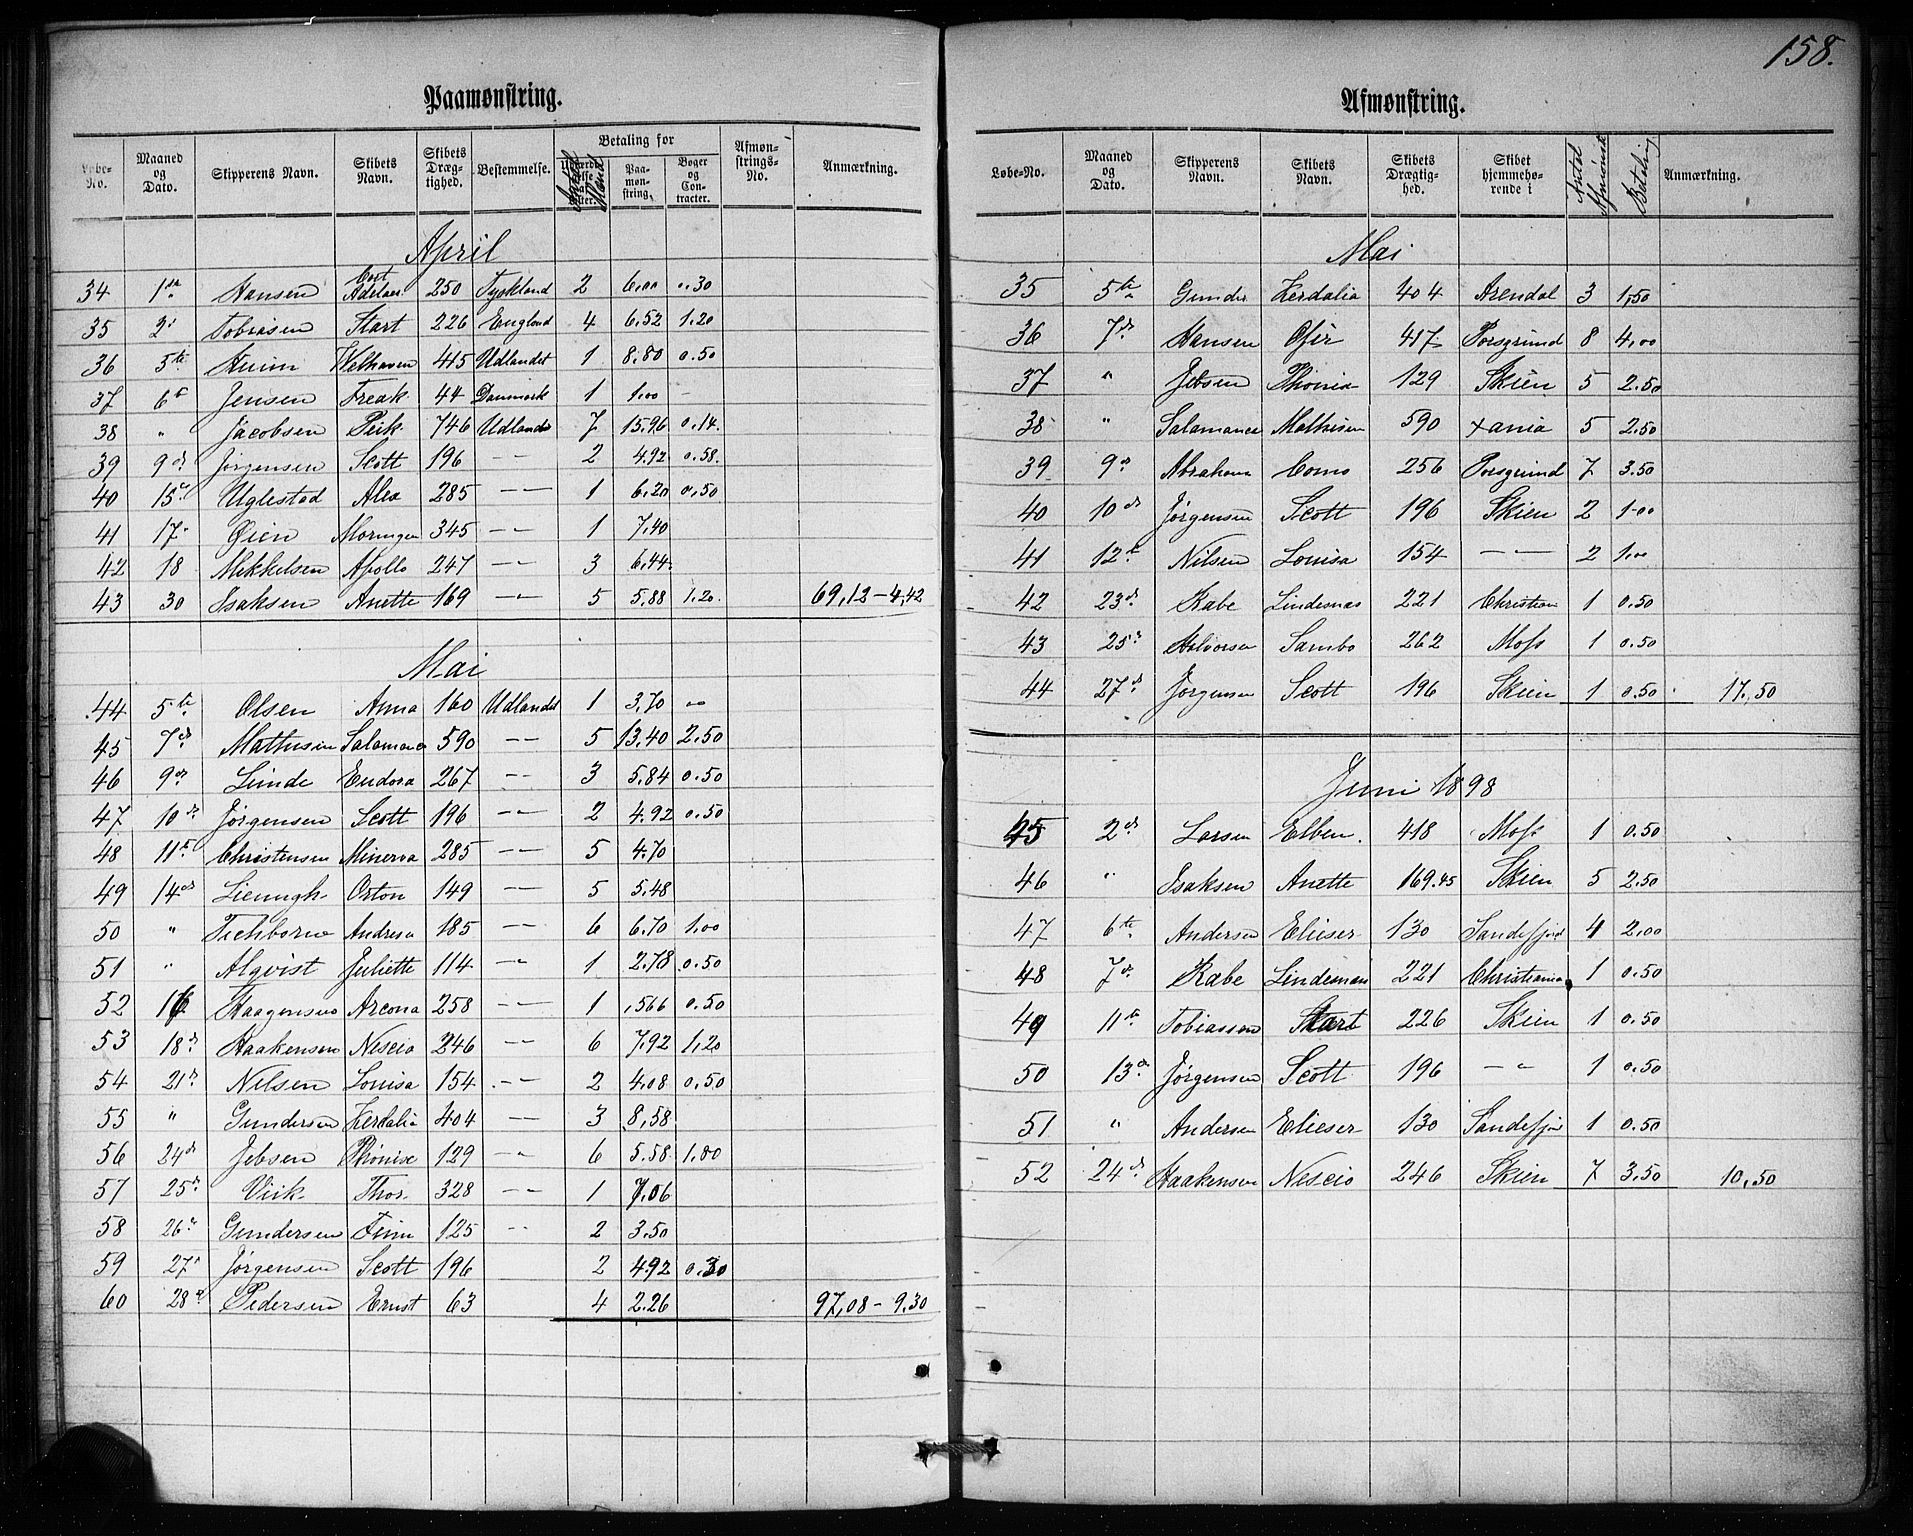 158.
Paamønstring.
Løbe-No. Maaned og Dato. Skipperens Navn. Skibets Navn. Skibets Drægtighed. Bestemmelse. Antal Betaling for Paamønstring. Bøger og Contracter. Afmønstrings-No. Anmærkning.
April
34 1ste Hansen Cort Adelaer 250 Tyskland 2 6,00 0.30
35 2' Tobiasen Start 226 England 4 6,52 1.20
36 5te Welhaven 415 Udlandet 1 8.80 0.50
37 6t Jensen Freak 44 Danmark 1 1.00 —
38 " Jacobsen Peik 746 Udlandet 7 15.96 0.14.
39 9de Jørgensen Scott 196 -"- 2 4.92 0.58.
40 15te Uglestad Alex 285 -"- 1 6.20 0,50
41 17 Øien Morningen 345 -"- 1 7,40
42 18 Mikkelsen Apollo 247 -"- 3 6,44.
43 30 Isaksen Anette 169 -"- 5 5,88 1.20. 69,12 - 4,42
Mai
44 5te Olsen Anna 160 Udlandet 1 3.70 "
45 7de Mathisen Salamanca 590 -"- 5 13,40 2.50
46 9de Lunde Eudora 267 -"- 3 5.84 0.50
47 10de Jørgensen Scott 196 -"- 2 4.92 0.50
48 11te Christensen Minerva 285 -"- 5 4.70
49 14de Orton 149 -"- 5 5,48
50 " Tichborne Andresa 185 -"- 6 6.70 1.00
51 " Alqvist Juliette 114 -"- 1 2.78 0.50
52 16 Haagensen Arcona 258 -"- 1 ,566 0.50
53 18de Haakensen Nescio 246 -"- 6 7.92 1,20
54 21de Nilsen Louisa 154 -"- 2 4.08 0,50
55 " Gundersen Kerdalia 404 -"- 3 8,58
56 24de Jebsen Phønix 129 -"- 6 5.58 1.80
57 25de Viik Thor 328 -"- 1 7,06
58 26de Gundersen Finn 125 -"- 2 3.50
59 27de Jørgensen Scott 196 2 4.92 0.30
60 28de Pedersen Ernst 63 4 2.26 97,08 - 9,30
Afmønstring.
Løbe-No. Maaned og Dato. Skipperens Navn. Skibets Navn. Skibets Drægtighed. Skibet hjemmehørende i Antal Afmønst. Betaling Anmærkning.
Mai
35 5te Gunder Kerdalia 404 Arendal 3 1,50
36 7de Hansen Ofir 417 Porsgrund 8 4,00
37 " Jebsen Phønix 129 Skien 5 2.50
38 " Salamanca Mathisen 590 Xania 5 2.50
39 9de Abraham Como 256 Porsgrund 7 3.50
40 10de Jørgensen Scott 196 Skien 2 1.00
41 12te Nilsen Louisa 154 -"- 2 1.00
42 23de Rabe Lindesnæs 221 Christian 1 0.50
43 25de Halvorsen Sambo 262 Moss 1 0.50
44 27de Jørgensen Scott 196 Skien 1 0.50 17,50
Juni 1898
45 2de Larsen Elben 418 Moss 1 0.50
46 " Isaksen Anette 169.45 Skien 5 2.50
47 6te Andersen Elieser 130 Sandefjord 4 2.00
48 7de Rabe Lindesnæs 221 Christiania 1 0.50
49 11te Tobiassen Start 226 Skien 1 0.50
50 13de Jørgensen Scott 196 -"- 1 0.50
51 " Andersen Elieser 130 Sandefjor 1 0.50
52 24de Haakensen Nescio 246 Skien 7 3,50 10,50